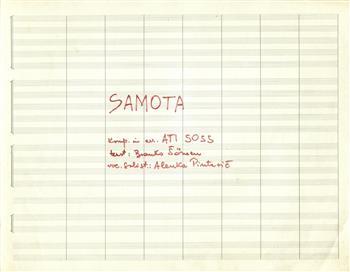 SAMOTA
komp. in arr. ATI SOSS
tekst: Branko Šömen
voc. solist.: Alenka Pinterič